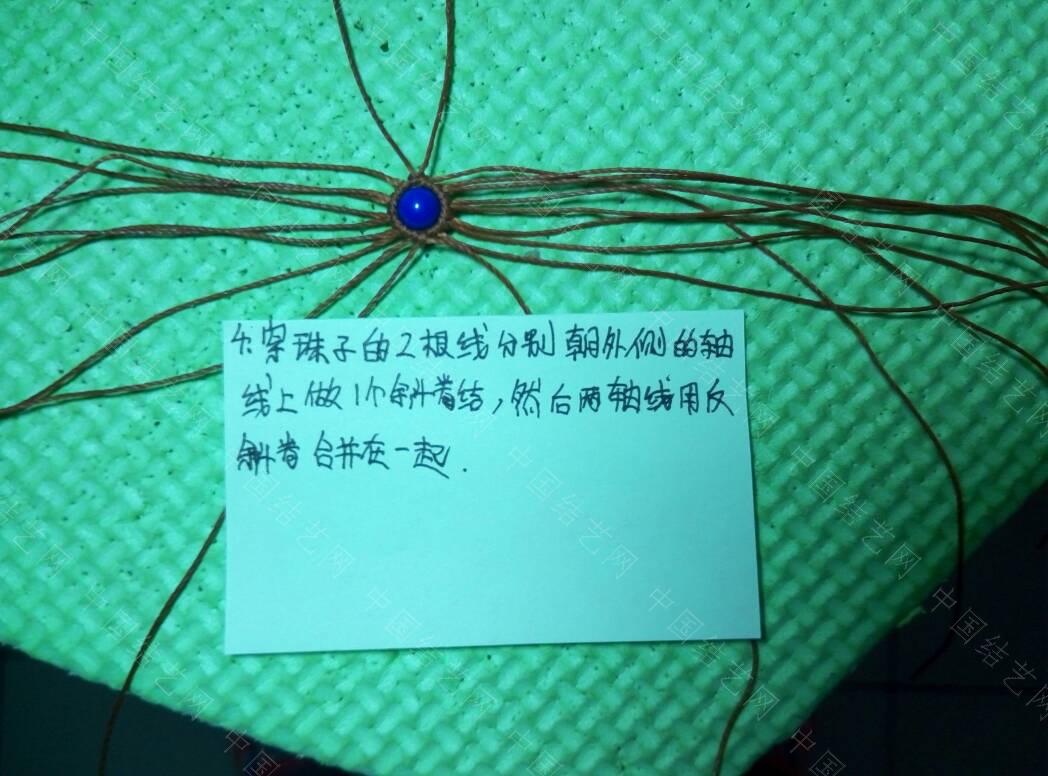 4:穿珠子的2根线分别朝外侧的轴
线上做1个斜卷结,然后两轴线用反
斜卷合并在一起.
中国结艺网